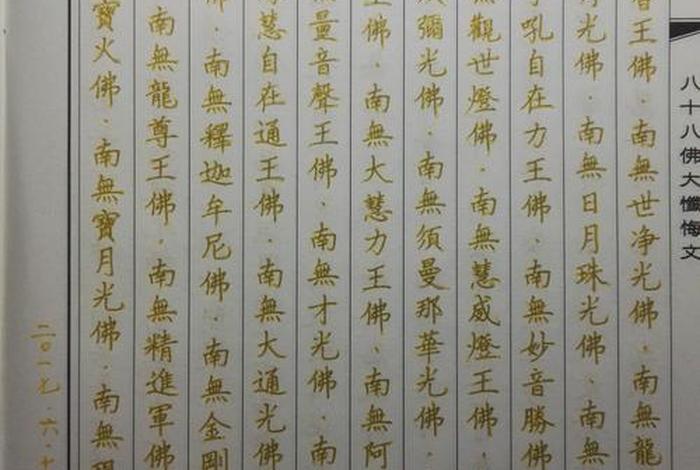 八十八佛大懺悔文
王佛．南無世净光佛．南無龍
光佛．南無日月珠光佛．南無
吼自在力王佛．南無妙音勝佛
觀世燈佛．南無慧威燈王佛．
彌光佛．南無須曼那華光佛．
佛．南無大慧力王佛．南無阿
量音聲王佛．南無才光佛．南
慧自在通王佛．南無大通光佛
．南無釋迦牟尼佛．南無金剛
南無龍尊王佛．南無精進軍佛
寶火佛．南無寶月光佛．南無
二〇一七．六．十